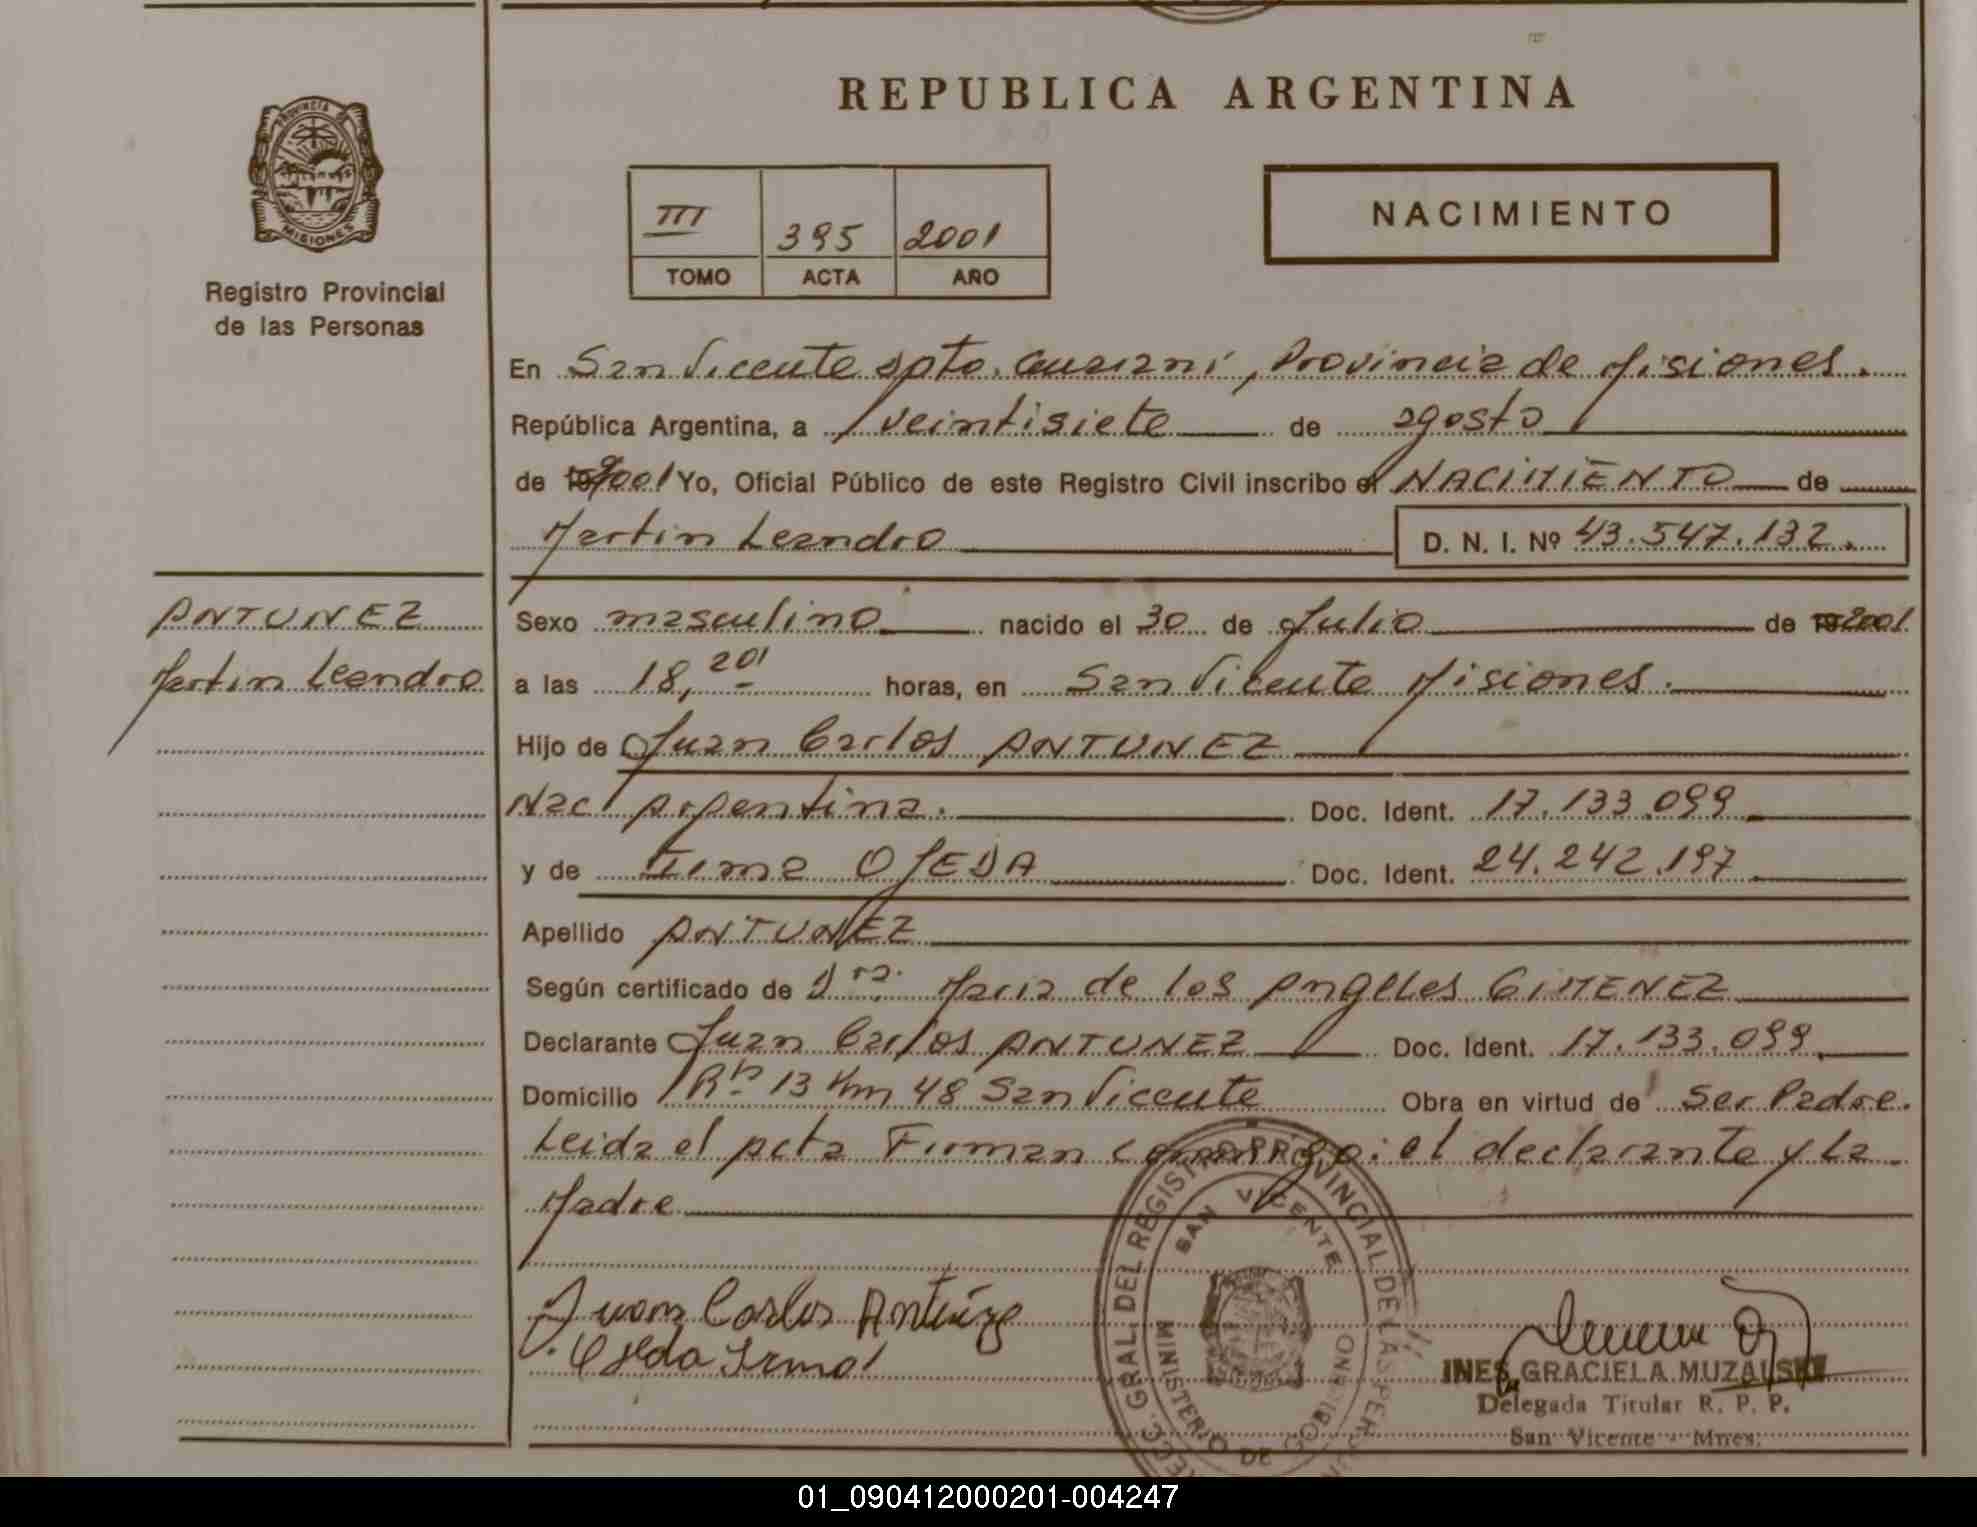 REPUBLICA ARGENTINA
PROVINCIA DE
MISIONES
Registro Provincial
de las Personas
III 395 2001
TOMO ACTA AÑO
NACIMIENTO
En San Vicente Dpto. Guaraní, Provincia de Misiones.
República Argentina, a veintisiete de agosto
de 2001 Yo, Oficial Público de este Registro Civil inscribo el NACIMIENTO de
Martin Leandro D. N. I. Nº 43.547.132.
ANTUNEZ
Martin Leandro
Sexo masculino nacido el 30 de Julio de 2001
a las 18,20 horas, en San Vicente Misiones.
Hijo de Juan Carlos ANTUNEZ
Nac. Argentina. Doc. Ident. 17.133.099
y de Irma OJEDA Doc. Ident. 24.242.197
Apellido ANTUNEZ
Según certificado de Dra. Maria de los Angeles GIMENEZ
Declarante Juan Carlos ANTUNEZ Doc. Ident. 17.133.099
Domicilio 13 Km 48 San Vicente Obra en virtud de Ser Padre.
Leida el Acta Firman conmigo: el declarante y La
Madre
Juan Carlos Antúnez
Ojeda Irma
GRAL. DEL REGISTRO PROVINCIAL DE LAS PERSON
SAN VICENTE
MINISTERIO DE GOBIERNO
INES GRACIELA MUZALSKI
Delegada Titular R. P. P.
San Vicente - Mnes.
01_090412000201-004247